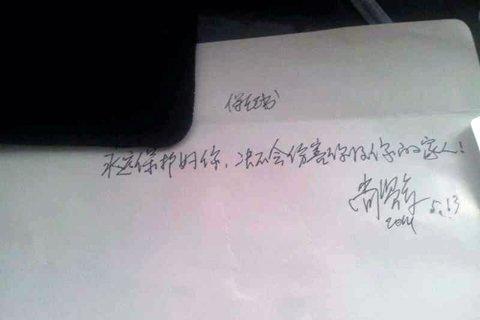 保证书
永远保护的你，决不会伤害你及你的家人！
2014 5.13